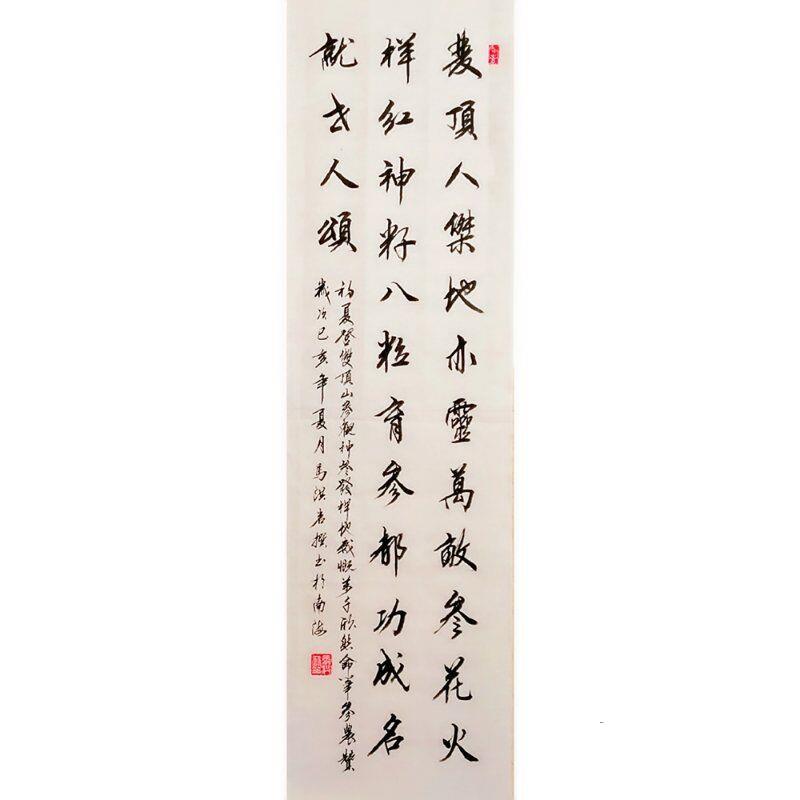 雙頂人傑地亦靈萬畝參花火
样紅神籽八粒育參都功成名
就世人頌
初夏登雙頂山參觀神參發样地感慨萬千欣然命筆參農贊
歲次己亥年夏月馬洪岩撰书於南海